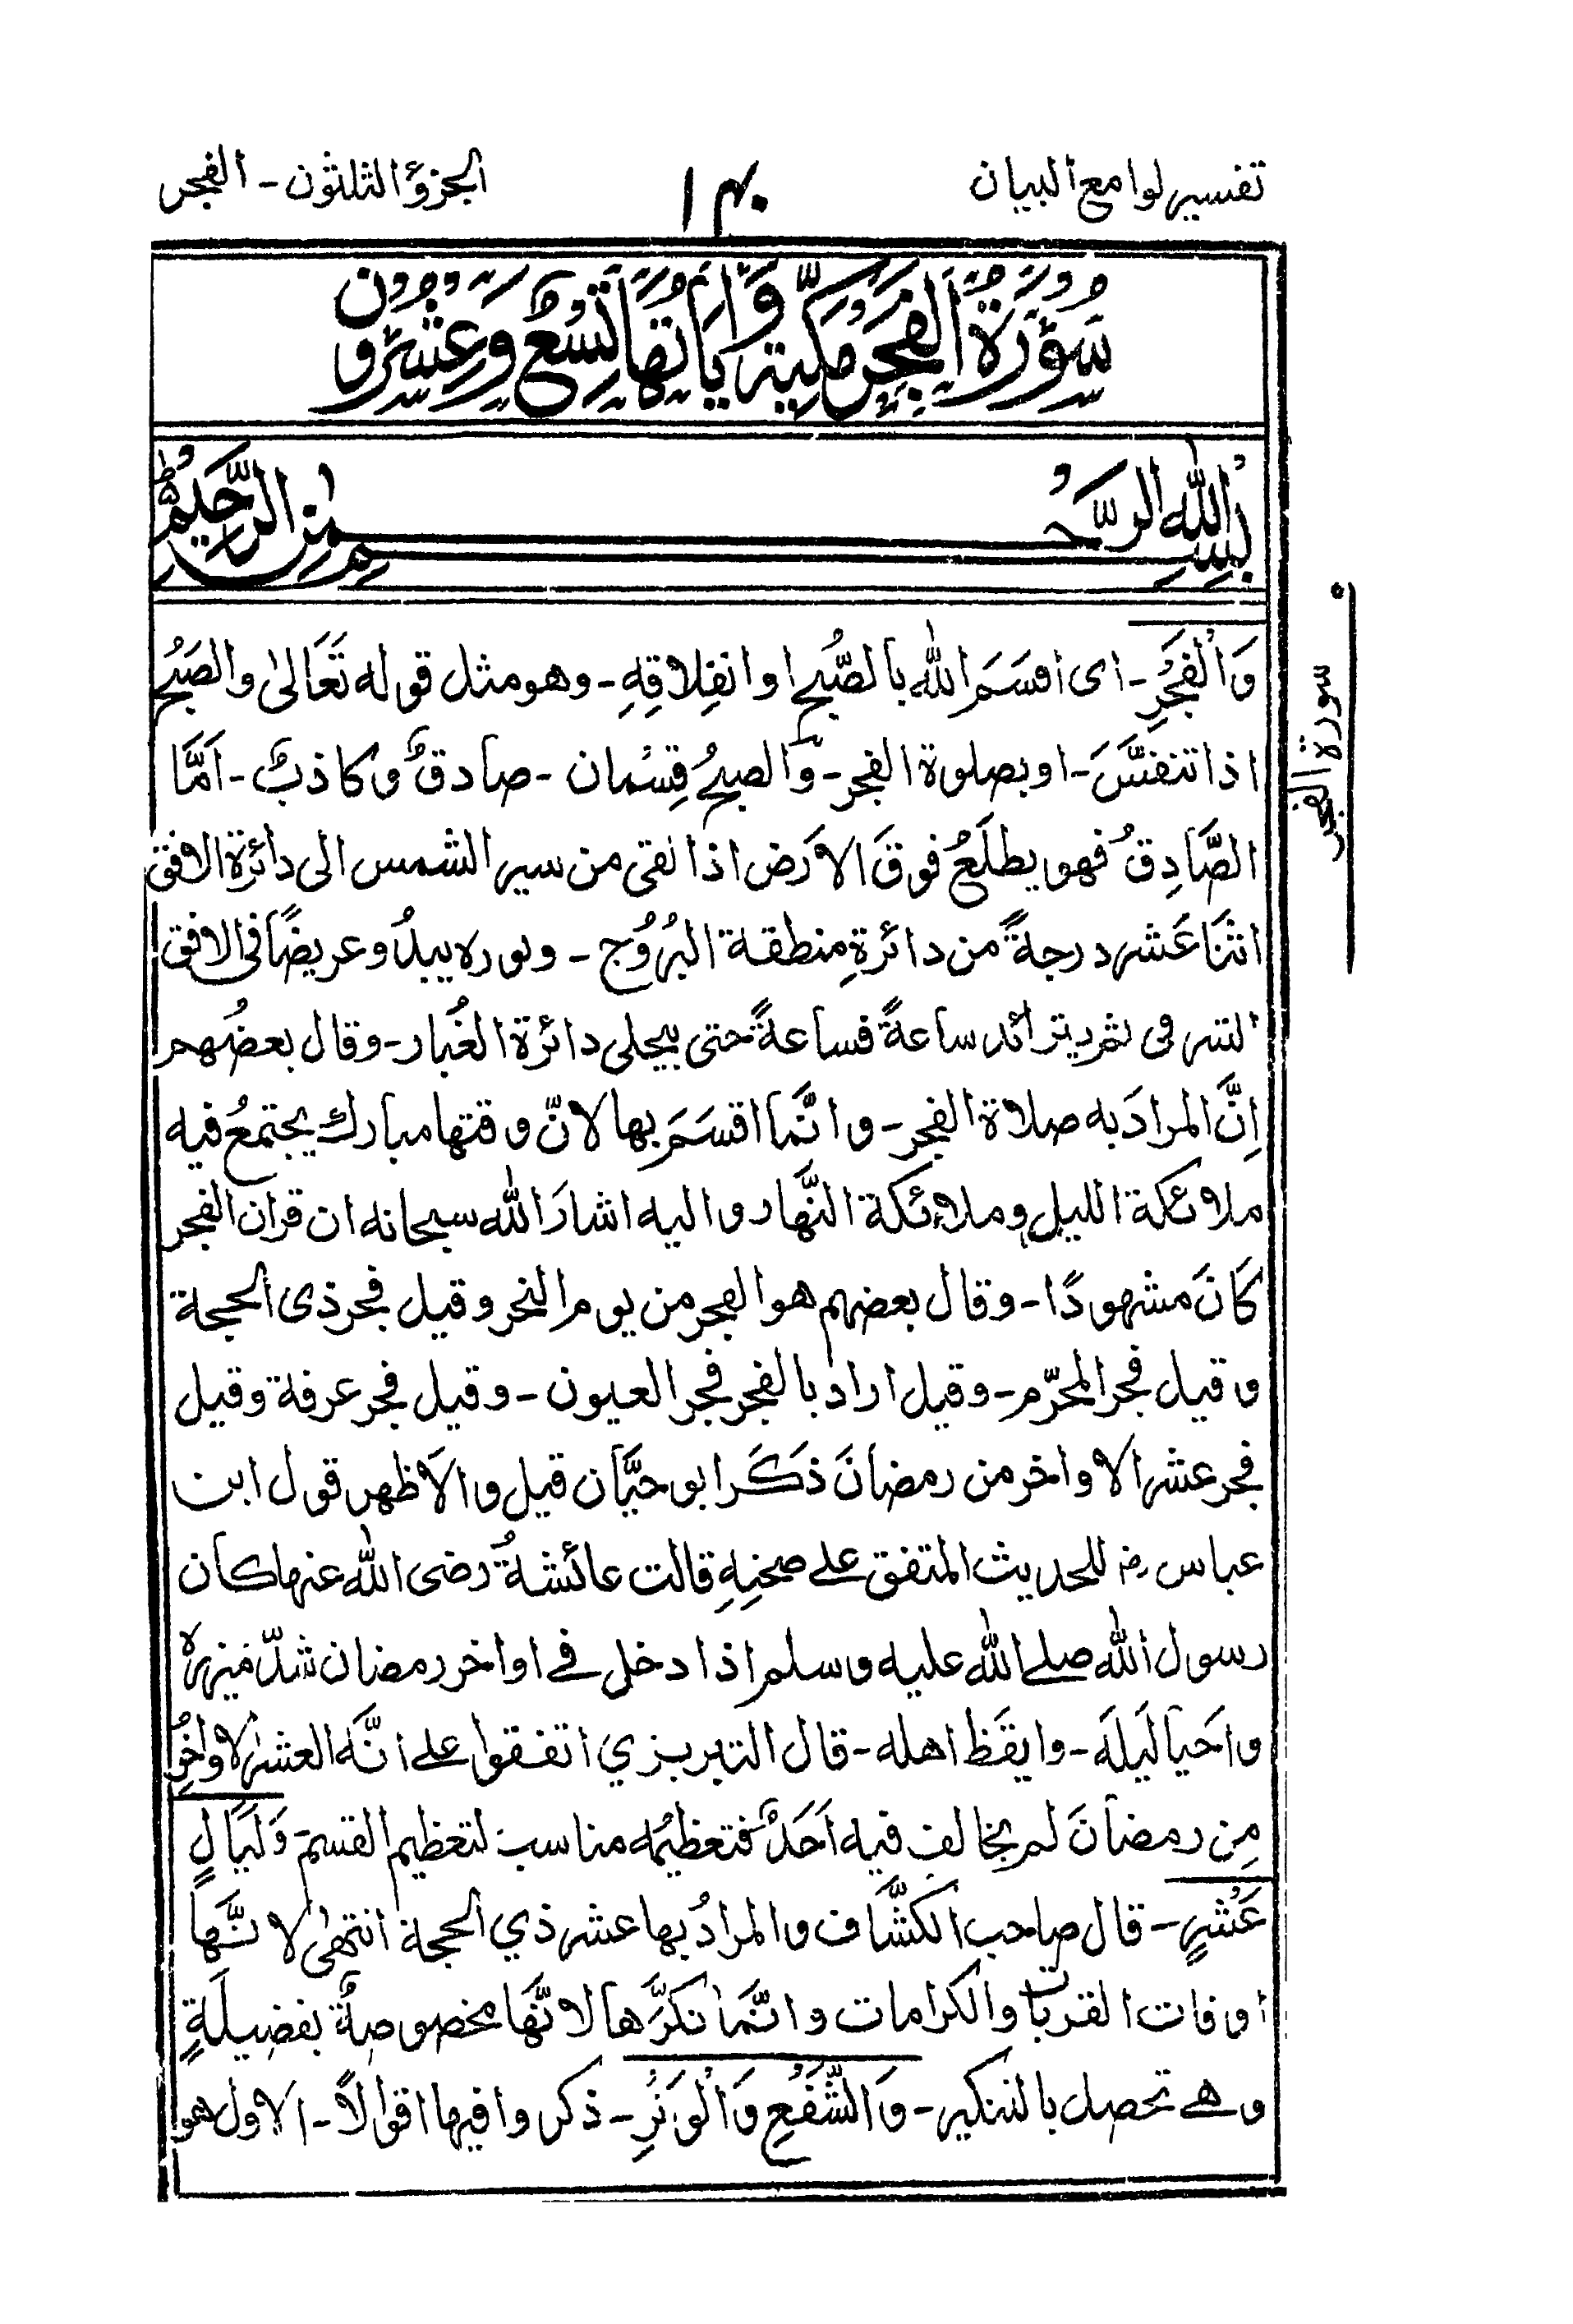 تفسير لوامع البيان
١٤٠
الجزؤ الثلثون - الفجر
سُوْرَةُ الْفَجْرِ مَكِّيَّةٌ وَّاٰيَاتُهَا تِسْعٌ وَّعِشْرُوْنَ
بِسْمِ اللّٰهِ الرَّحْمٰنِ الرَّحِيْمِ
وَالْفَجْرِ - اى اقسَمَ اللّٰه بالصُّبحِ او انفِلاقِهِ - وهو مثل قوله تَعَالىٰ والصّبحِ
اذا تنفسَّ - او بصلوة الفجر - وَالصبحُ قِسْمان - صادقٌ وكاذبٌ - اَمَّا
الصَّادِقُ فهو يطلَعُ فوقَ الاَرَض اذا نقى من سير الشمس الى دائرة الافق
اثنَا عَشر درجةً من دائرةِ منطقة البُرُوج - ونوره يبدُو عريضًا فى الافق
الشرقى ثم يتزائد ساعةً فساعةً حتى يجلى دائرة الغُبار - وقال بعضُهم
اِنَّ المرادَ به صلاة الفجر - وانَّما اقسَمَ بها لانّ وقتها مبارك يجتمعُ فيه
ملائكة الليل وملائكة النَّهار واليه اشارَ اللّٰه سبحانه ان قران الفجر
كَانَ مشهودًا - وقال بعضهم هو الفجر من يوم النحر وقيل فجر ذى الحجة
وقيل فجر المحرّم - وقيل اراد بالفجر فجر العيون - وقيل فجر عرفة وقيل
فجر عشر الاواخر من رمضانَ ذكَرَ ابو حيَّان قيل والاَظهر قول ابن
عباس رض للحديث المتفق على صحتِهِ قالت عائشةُ رضى اللّٰه عنها كان
رسول اللّٰه صلى اللّٰه عليه وسلم اذا دخل فى اواخر رمضان شدّ مئزره
واَحيا لَيلَه - وايقَظ اهله - قال التبريزي اتفقوا على انَّه العشر الاواخِرُ
مِن رمضانَ لم يخالف فيه اَحَدٌ فتعظيمُه مناسب لتعظيم القسم - وَلَيَالٍ
عَشْرٍ - قال صاحب الكشَّاف والمرادُ بها عشر ذي الحجة انتهىٰ لانَّها
اوقات القربات والكرامات وانَّما نكرَّها لانَّها مخصوصةٌ بفضيلَةٍ
وهى تحصل بالتنكير - وَالشَّفْعِ وَالْوَتْرِ - ذكروا فيها اقوالاً - الاول هو
سورة الفجر